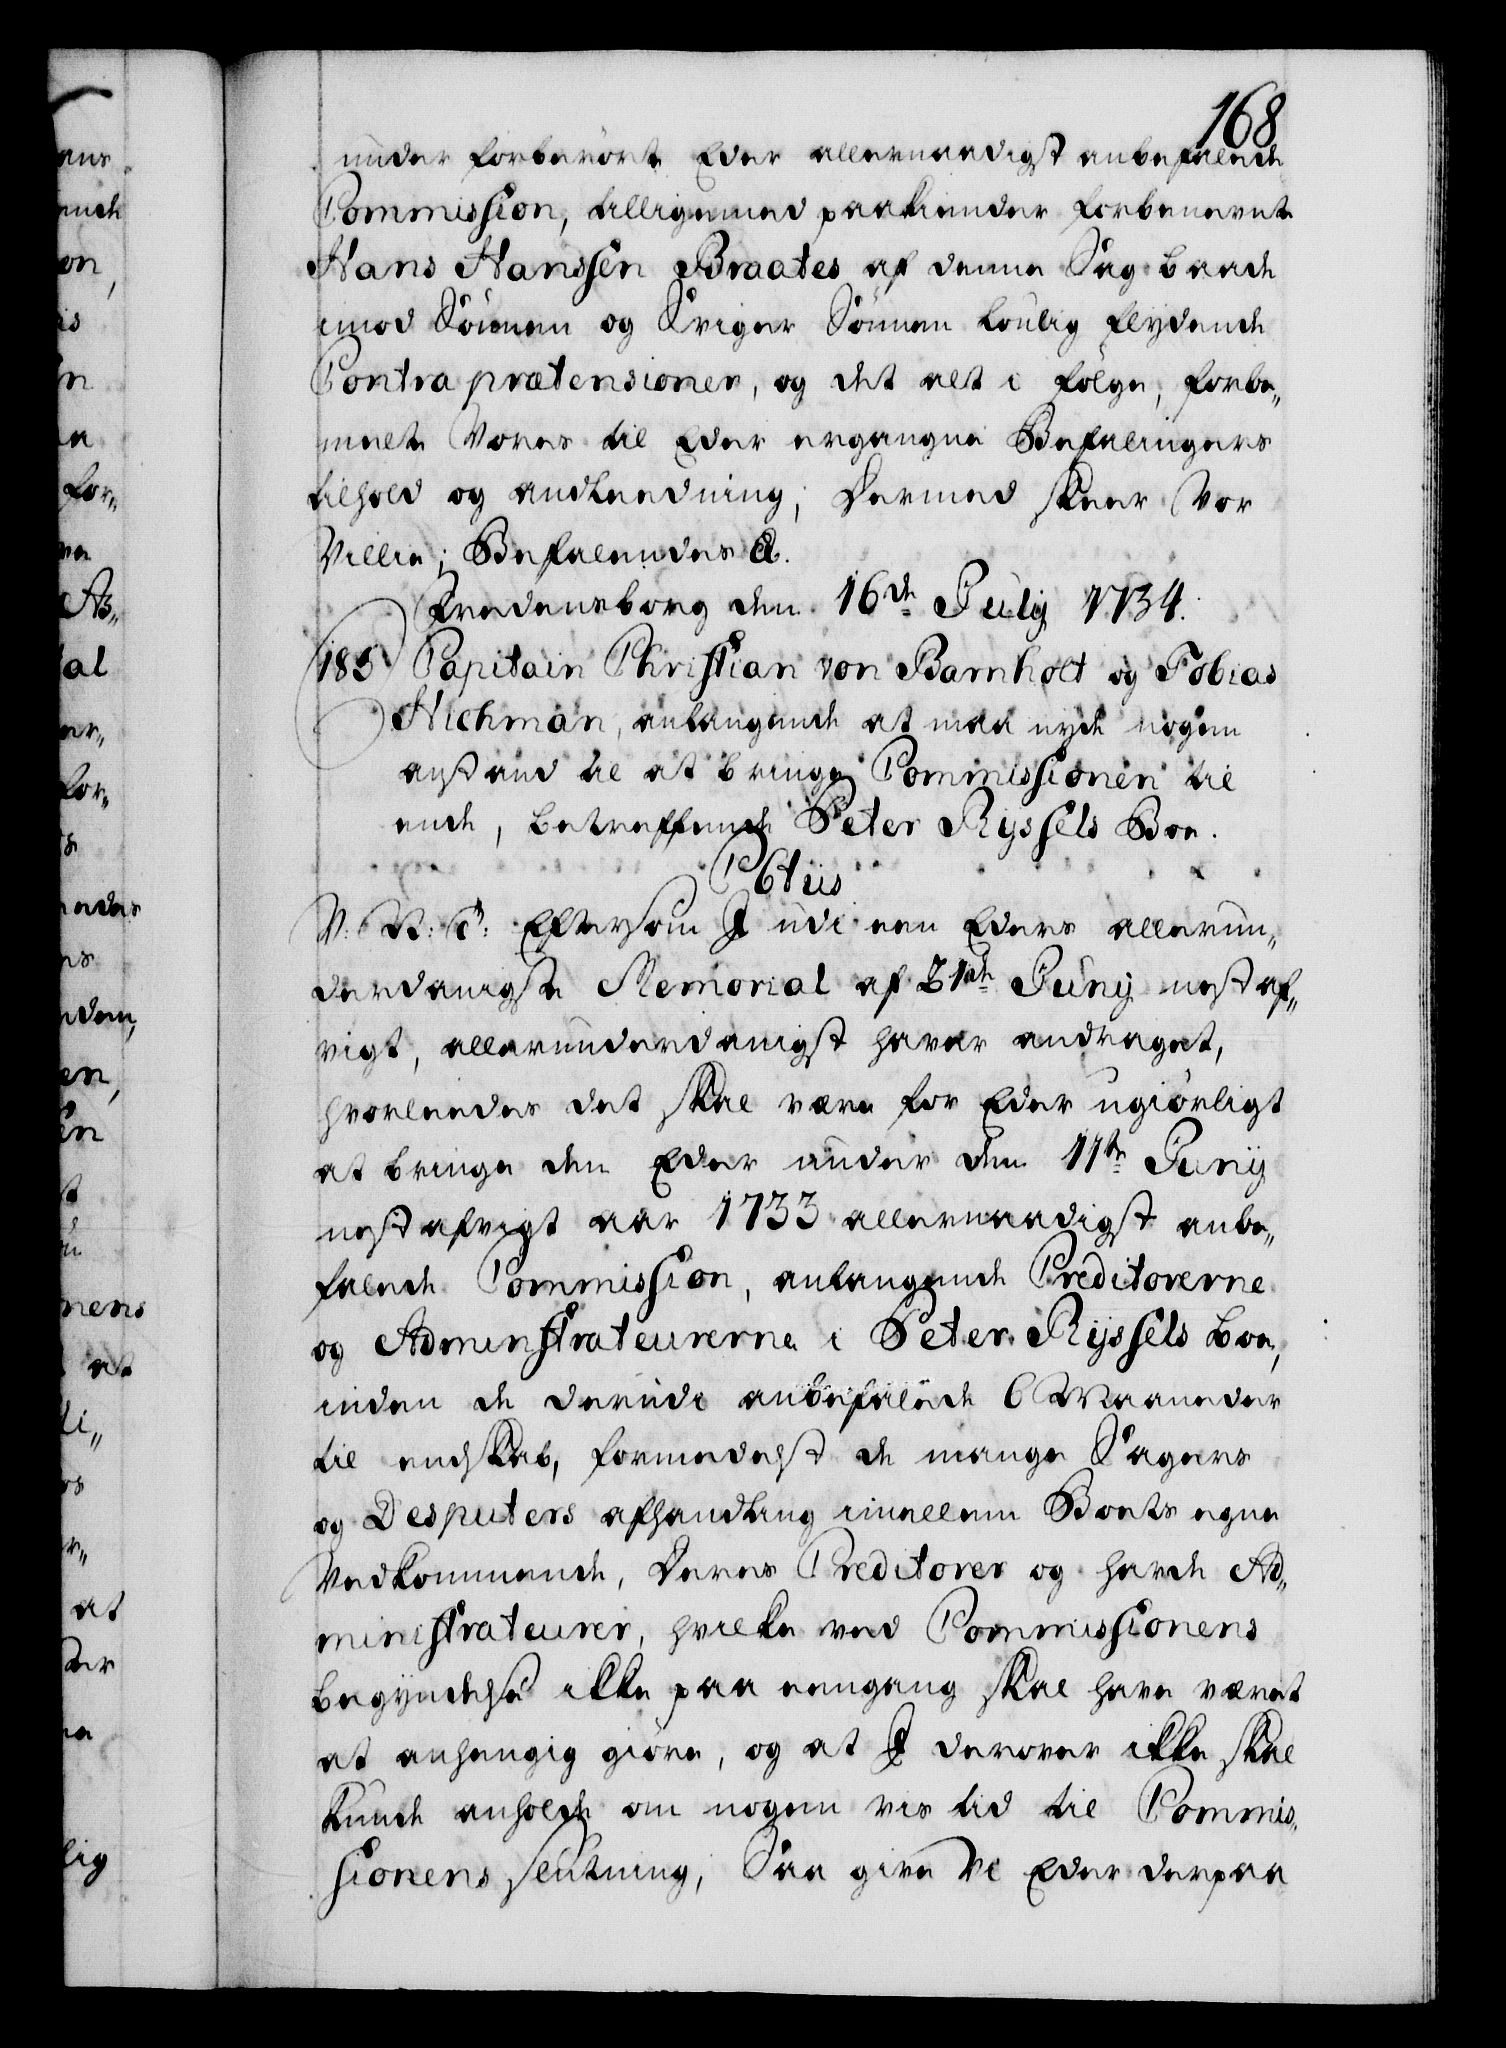 168
under forberørt Eder allernaadigst anbefalede
Commission, tilligemed paakiender forbenevnte
Hans Hanssen Braates af denne Sag baade
imod Sønnen og Sviger Sønnen louglig flydende
Contra prætensioner, og det alt i følge, forbe„
melte Vores til Eder ergangne Befalingers
tilhold og andleedning; Dermed skeer Vor
Villie; Befalendes &.
Fredensborg den 16de July 1734.
185 Capitain Christian von Barnholt og Tobias
Hichman, anlangende at maa nyde nogen
anstand til at bringe Commissionen til
ende, betreffende Peter Ryssels Boe.
C6tus
V: G: T: Eftersom I udi een Eders allerun„
derdanigste Memorial af 21de Juny nest af„
vigt, allerunderdanigst haver andraget,
hvorleedes det skal være for Eder ugiørligt
at bringe den Eder under den 11te Juny
nest afvigt aar 1733 allernaadigst anbe„
falede Commission, anlangende Creditorerne
og Adminstrateurerne i Peter Ryssels boe,
inden de derudi anbefalede 6 Maaneder
til endskab, formedelst de mange Sagers
og Desputers afhandling imellem Boets egne
Vedkommende, Deres Creditorer og havde Ad„
ministrateurer, hvilke ved Commissionens
begyndelse ikke paa eengang skal have været
at anhengig giøre, og at I derover ikke skal
kunde anholde om nogen vis tid til Commis„
sionens slutning; Saa give Vi Eder derpaa